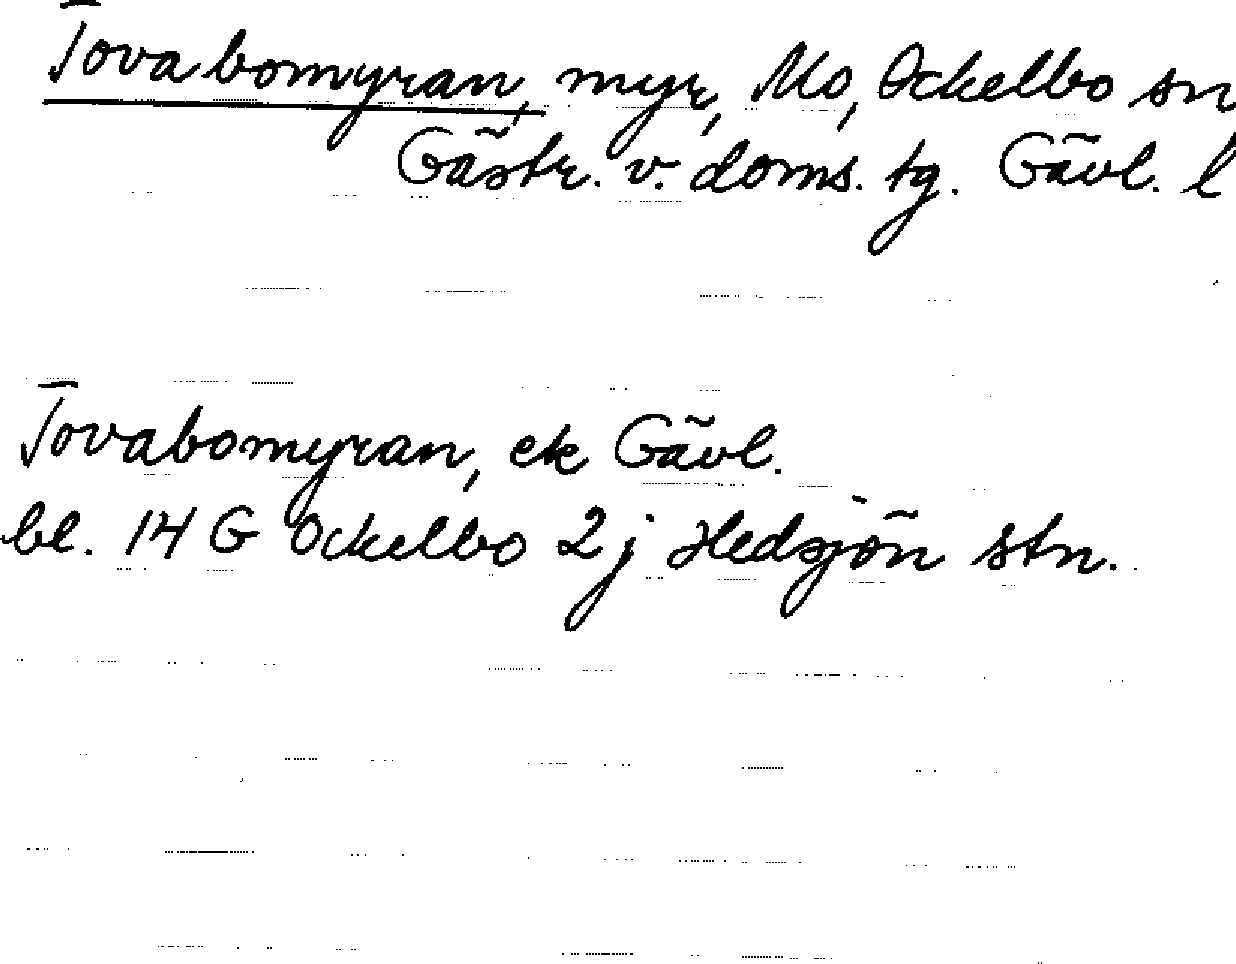 Tovabomyran, myr, Mo, Ockelbo sn
Gästr. v. doms. tg. Gävl. l
Tovabomyran, ek Gävl.
bl. 14 G Ockelbo 2 j Hedsjön stn.